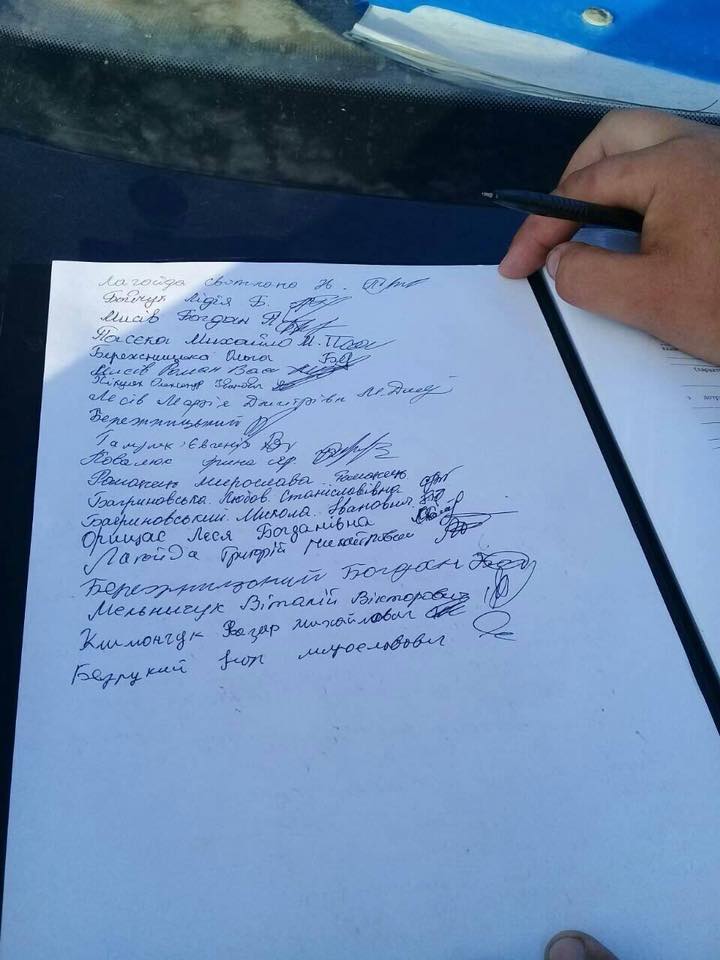 Лагойда Світлана Н.
Бойчук Лідія Б.
Мисів Богдан П.
Пасєка Михайло М.
Бережницька Ольга
Мисів Роман Вас
Олександр Іванович
Лесів Марія Дмитрівн М.Д.
Бережницький
Євгенія
Ковалюк Ірина
Романець Мирослава Романець
Багриновська Любов Станіславівна
Багриновський Микола Іванович
Орищас Леся Богданівна
Лагойда Григорій Михайлович
Бережницький Богдан
Мельничук Віталій Вікторович
Климончук Назар Михайлович
Безруκий Мирославович